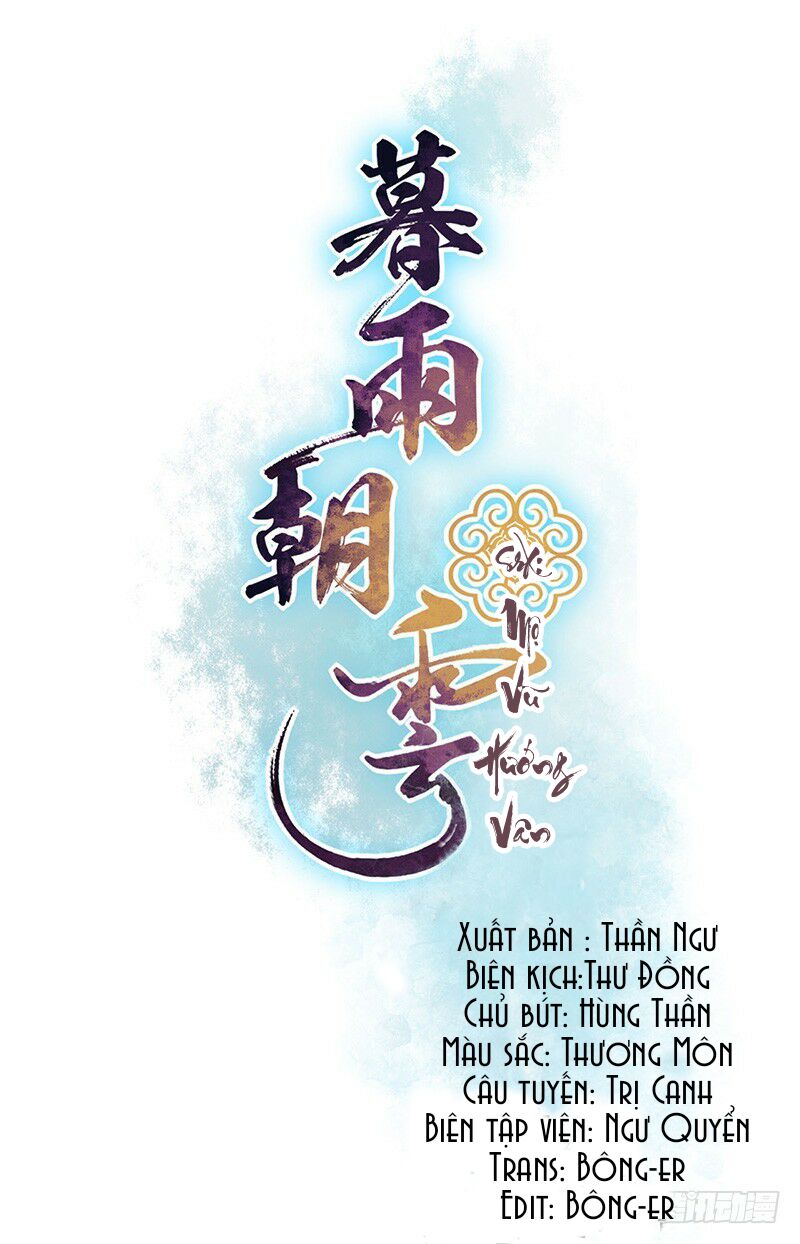 暮雨朝雲
Mộ
Vũ
Hướng
Vân
Xuất bản : Thần Ngư
Biên kịch:Thư Đồng
Chủ bút: Hùng Thần
Màu sắc: Thương Môn
Câu tuyến: Trị Canh
Biên tập viên: Ngư Quyển
Trans: Bông-er
Edit: Bông-er